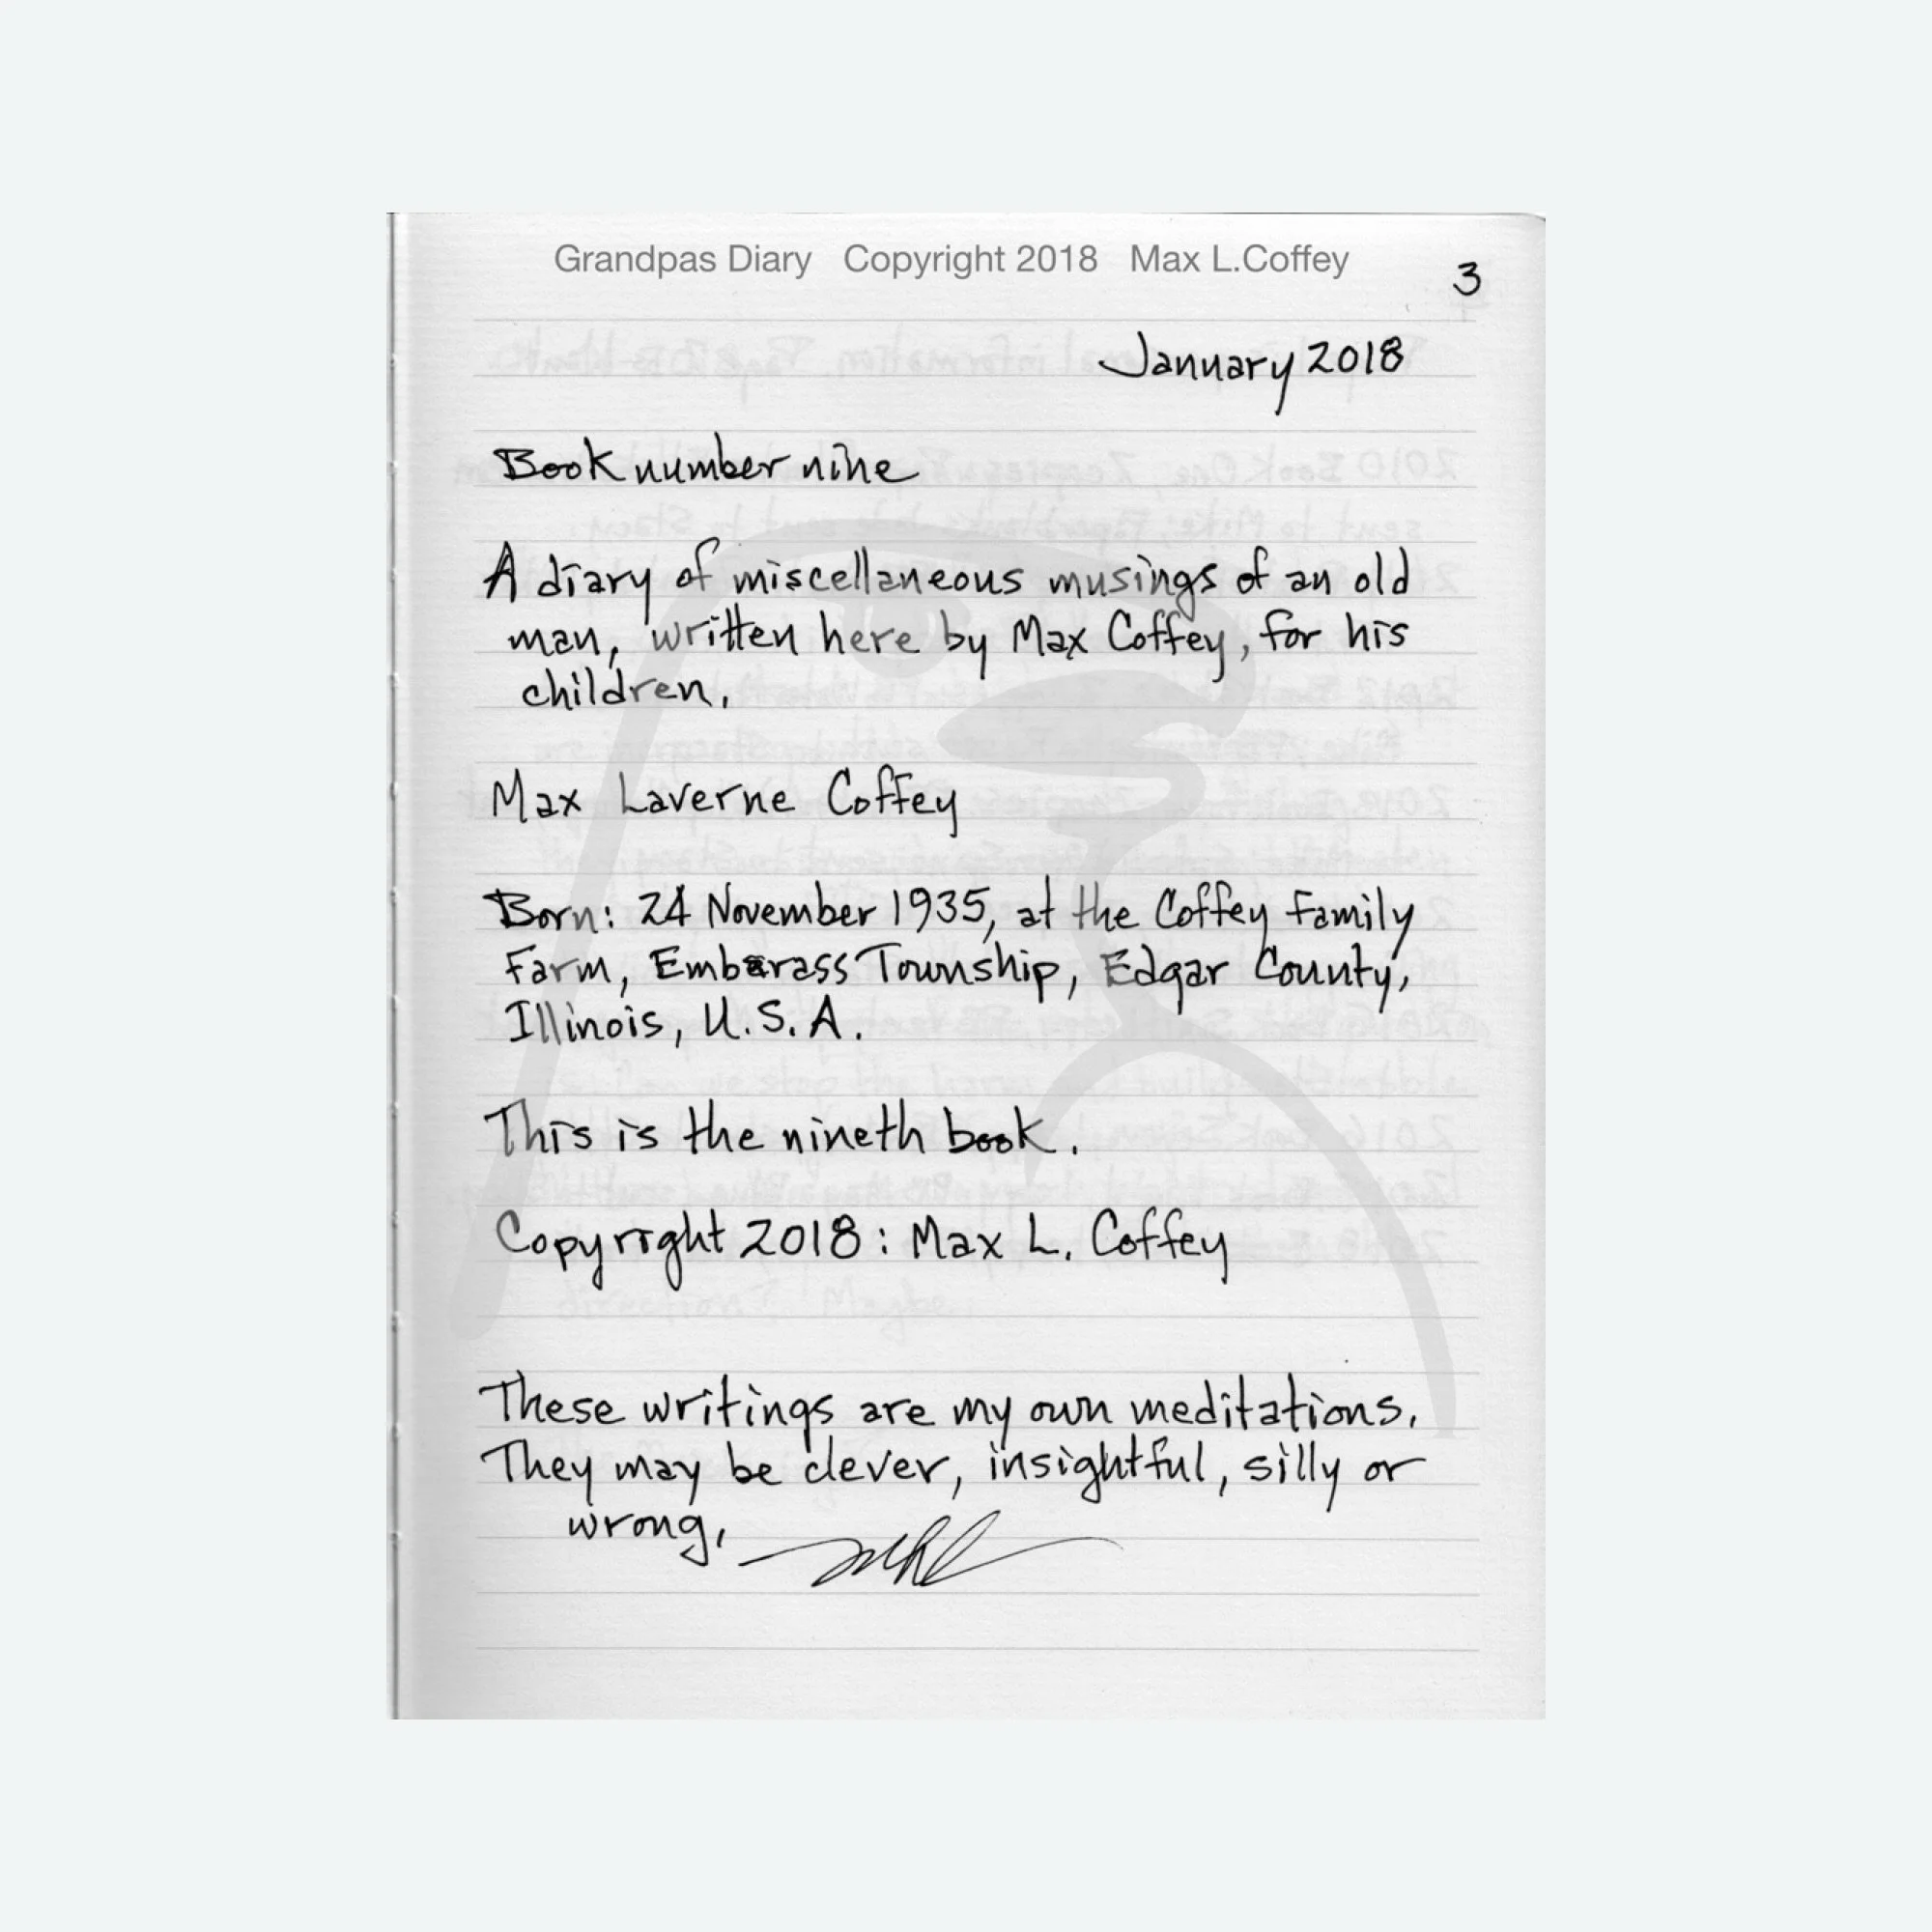 Grandpas Diary Copyright 2018 Max L.Coffey
3
January 2018
Book number nine
A diary of miscellaneous musings of an old
man, written here by Max Coffey, for his
children.
Max Laverne Coffey
Born: 24 November 1935, at the Coffey Family
Farm, Embarass Township, Edgar County,
Illinois, U.S.A.
This is the nineth book.
Copyright 2018: Max L. Coffey
These writings are my own meditations.
They may be clever, insightful, silly or
wrong.